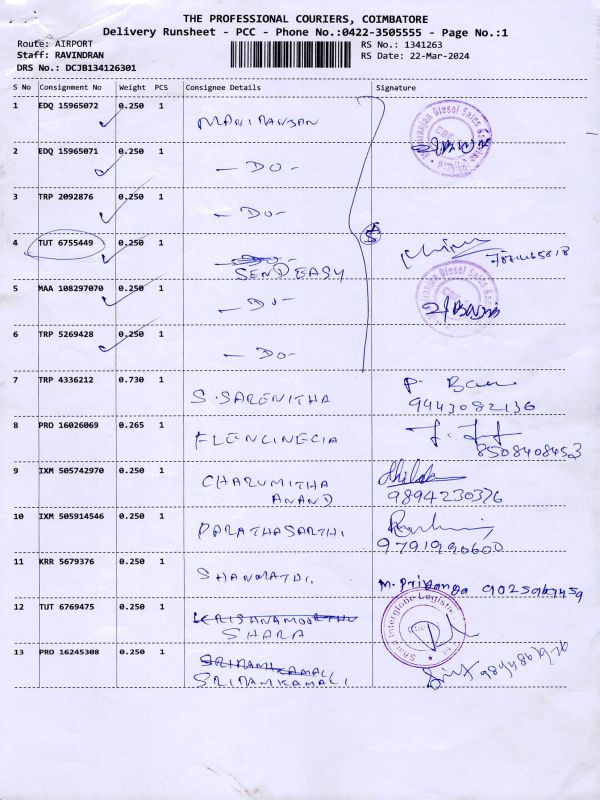 THE PROFESSIONAL COURIERS, COIMBATORE
Delivery Runsheet - PCC - Phone No.:0422-3505555 - Page No.:1
Route: AIRPORT RS No.: 1341263
Staff: RAVINDRAN RS Date: 22-Mar-2024
DRS No.: DCJB134126301
S No Consignment No Weight PCS Consignee Details Signature
1 EDQ 15965072 0.250 1 MANIRANJAN
2 EDQ 15965071 0.250 1 - DO -
3 TRP 2092876 0.250 1 - DO -
4 TUT 6755449 0.250 1
SEND EASY
5 MAA 108297070 0.250 1 - DO -
6 TRP 5269428 0.250 1 - DO -
7 TRP 4336212 0.730 1 S. SARENITHA
9443082136
8 PRO 16026069 0.265 1 FLENCINECIA
8508408453
9 IXM 505742970 0.250 1 CHARUMITHA
ANAND 9894230376
10 IXM 505914546 0.250 1 PARATHASARTHI
9791990600
11 KRR 5679376 0.250 1 SHANMATHI. M. Priyanga
12 TUT 6769475 0.250 1 KRISHNAMOORTHY
SHARA
13 PRO 16245308 0.250 1
SRIRAMKAMALI